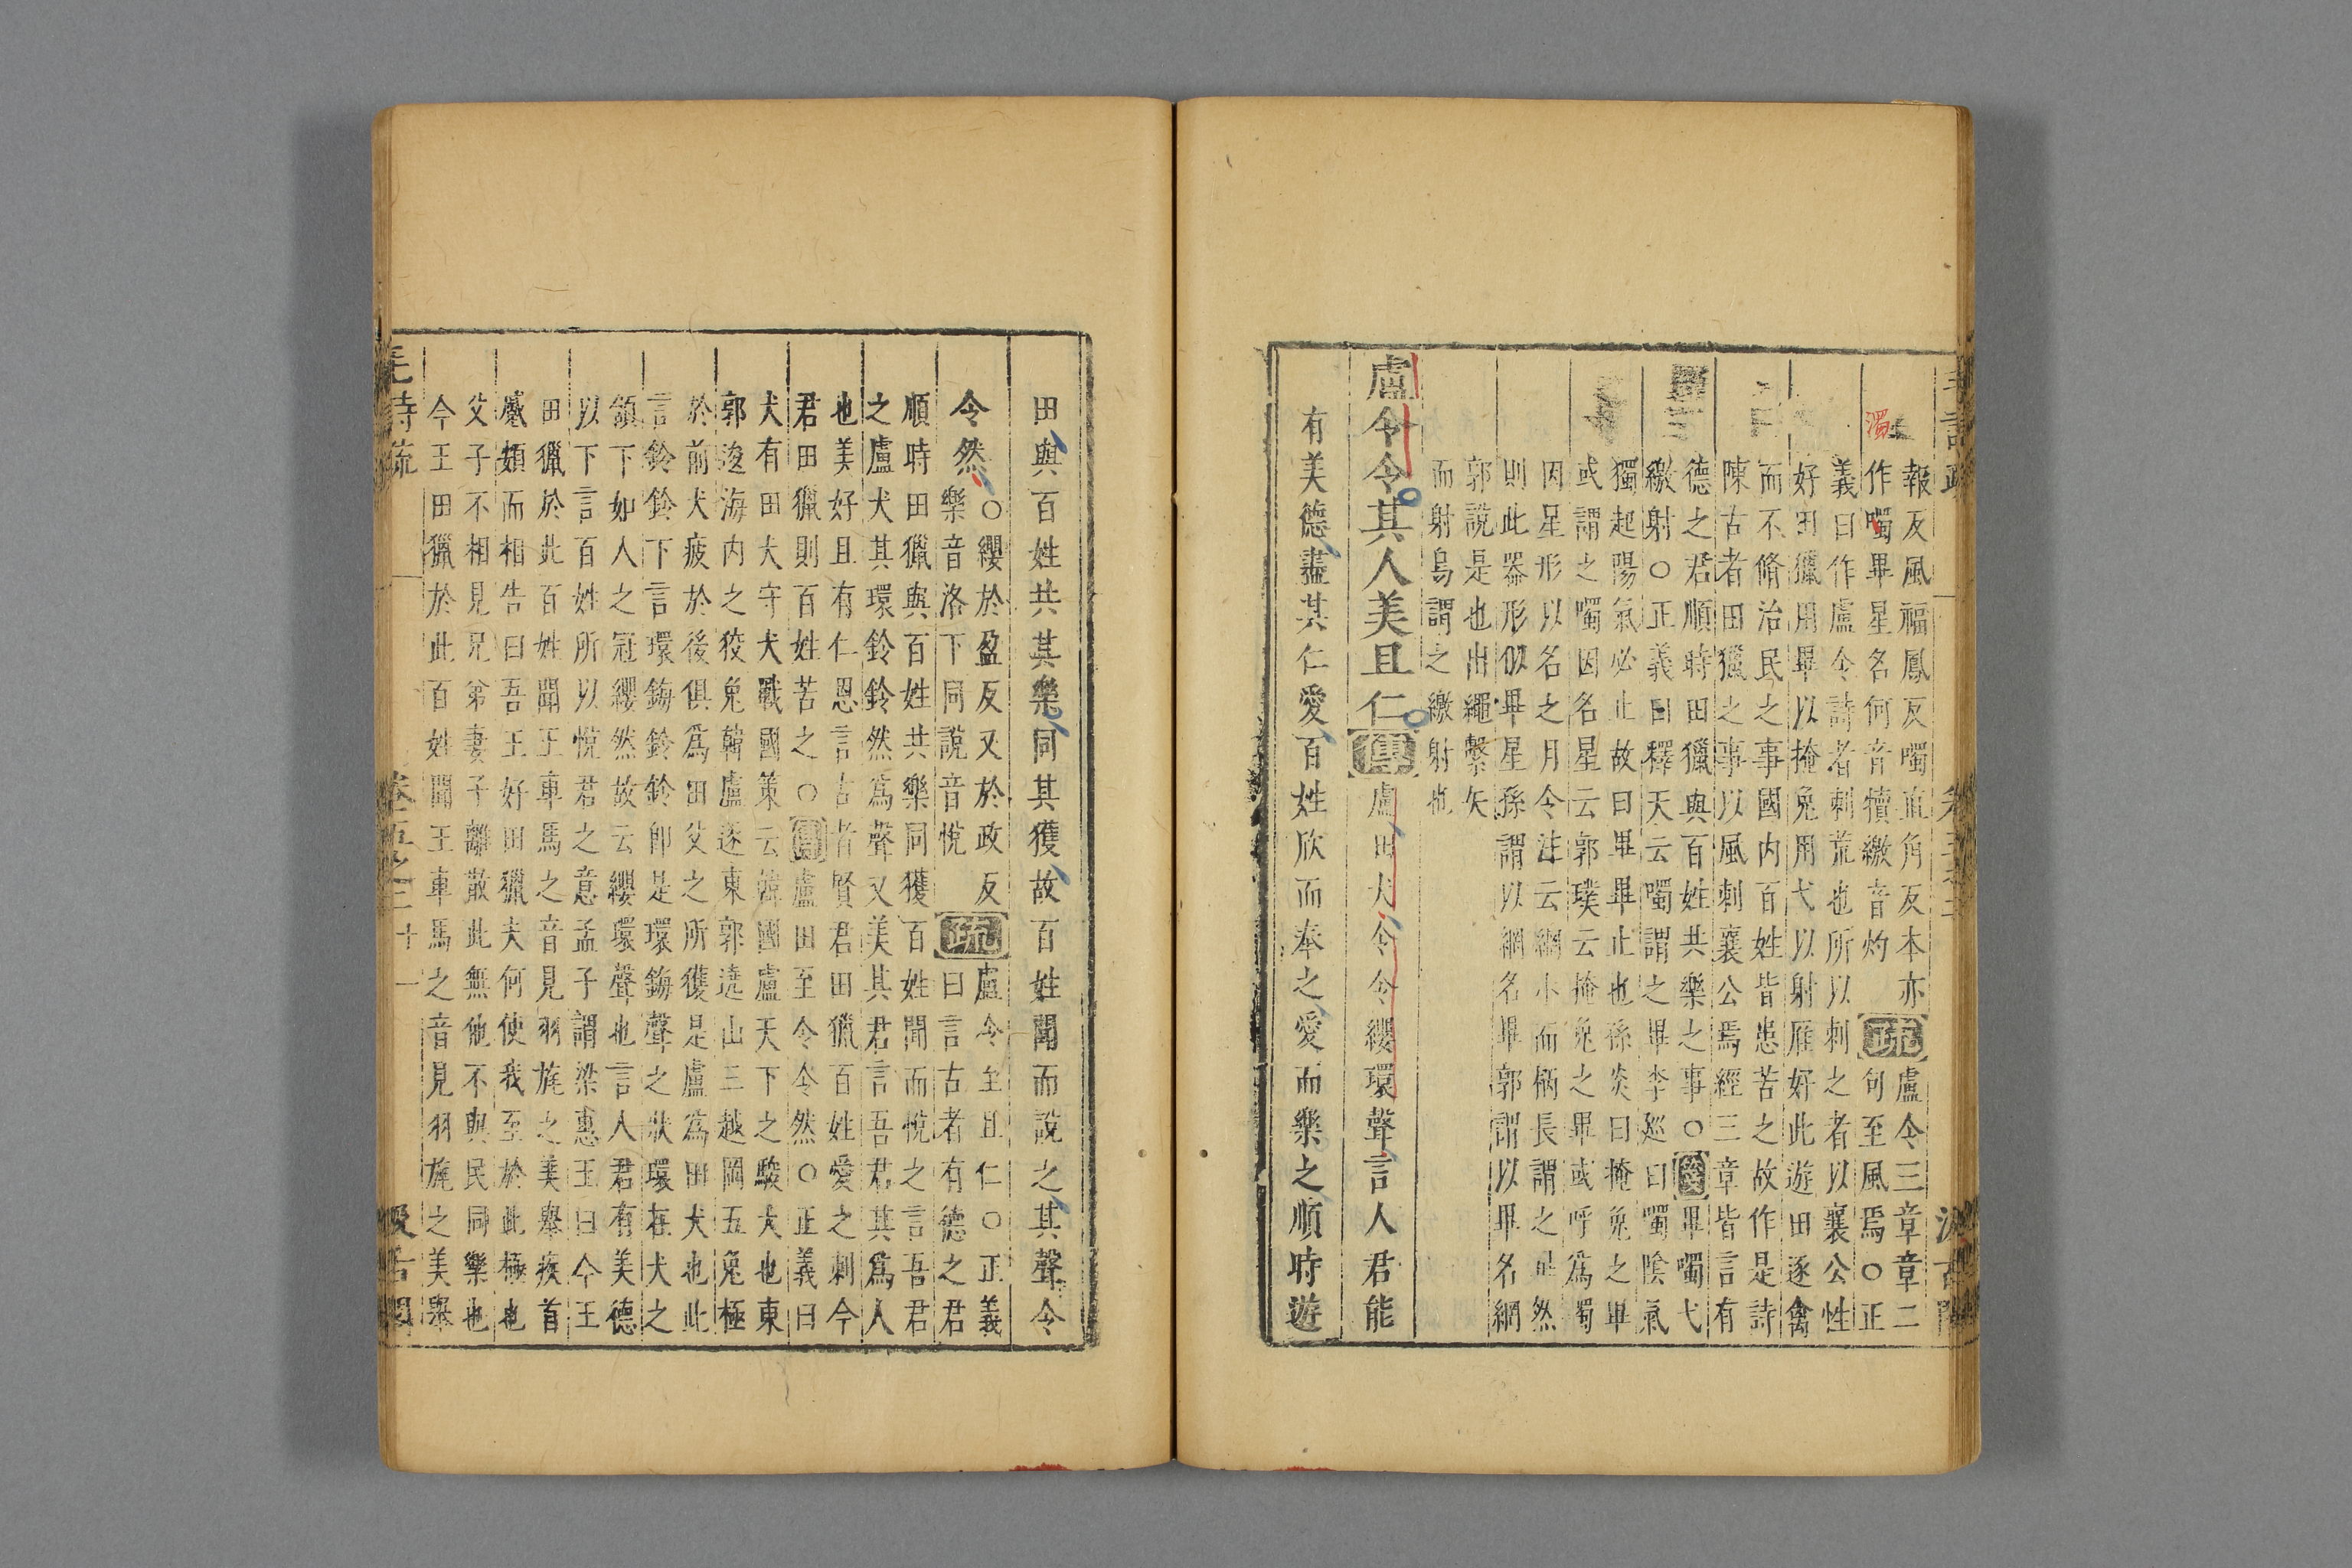 報反風福鳳反噣直角反本亦
作噣畢星名何音犢繳音灼
濁
疏
盧令三章章二
句至風焉○正
義曰作盧令詩者刺荒也所以刺之者以襄公性
好田獵用畢以掩兔用弋以射雁好此遊田逐禽
而不脩治民之事國內百姓皆患苦之故作是詩
陳古者田獵之事以風刺襄公焉經三章皆言有
德之君順時田獵與百姓共樂之事○箋畢噣弋
繳射○正義曰釋天云噣謂之畢李巡曰噣陰氣
獨起陽氣必止故曰畢畢止也孫炎曰掩兔之畢
或謂之噣因名星云郭璞云掩兔之畢或呼為濁
因星形以名之月令注云網小而柄長謂之畢然
則此器形似畢星孫謂以網名畢郭謂以畢名網
郭說是也出繩繫矢
而射鳥謂之繳射也
盧令令其人美且仁傳盧田犬令令纓環聲言人君能
有美德盡其仁愛百姓欣而奉之愛而樂之順時遊
田與百姓共其樂同其獲故百姓聞而說之其聲令
令然○纓於盈反又於政反
樂音洛下同說音悅
疏
盧令至且仁○正義
曰言古者有德之君
順時田獵與百姓共樂同獲百姓聞而悅之言吾君
之盧犬其環鈴鈴然為聲又美其君言吾君其為人
也美好且有仁恩言古者賢君田獵百姓愛之刺今
君田獵則百姓苦之○傳盧田至令令然○正義曰
犬有田犬守犬戰國策云韓國盧天下之駿犬也東
郭逡海內之狡兔韓盧逐東郭遶山三越岡五兔極
於前犬疲於後俱為田父之所獲是盧為田犬也此
言鈴鈴下言環鋂鈴鈴卽是環鋂聲之狀環在犬之
頷下如人之冠纓然故云纓環聲也言人君有美德
以下言百姓所以悅君之意孟子謂梁惠王曰今王
田獵於此百姓聞王車馬之音見羽旄之美舉疾首
蹙頞而相告曰吾王好田獵夫何使我至於此極也
父子不相見兄弟妻子離散此無他不與民同樂也
今王田獵於此百姓聞王車馬之音見羽旄之美舉
毛詩疏 卷五之二 十一 汲古閣